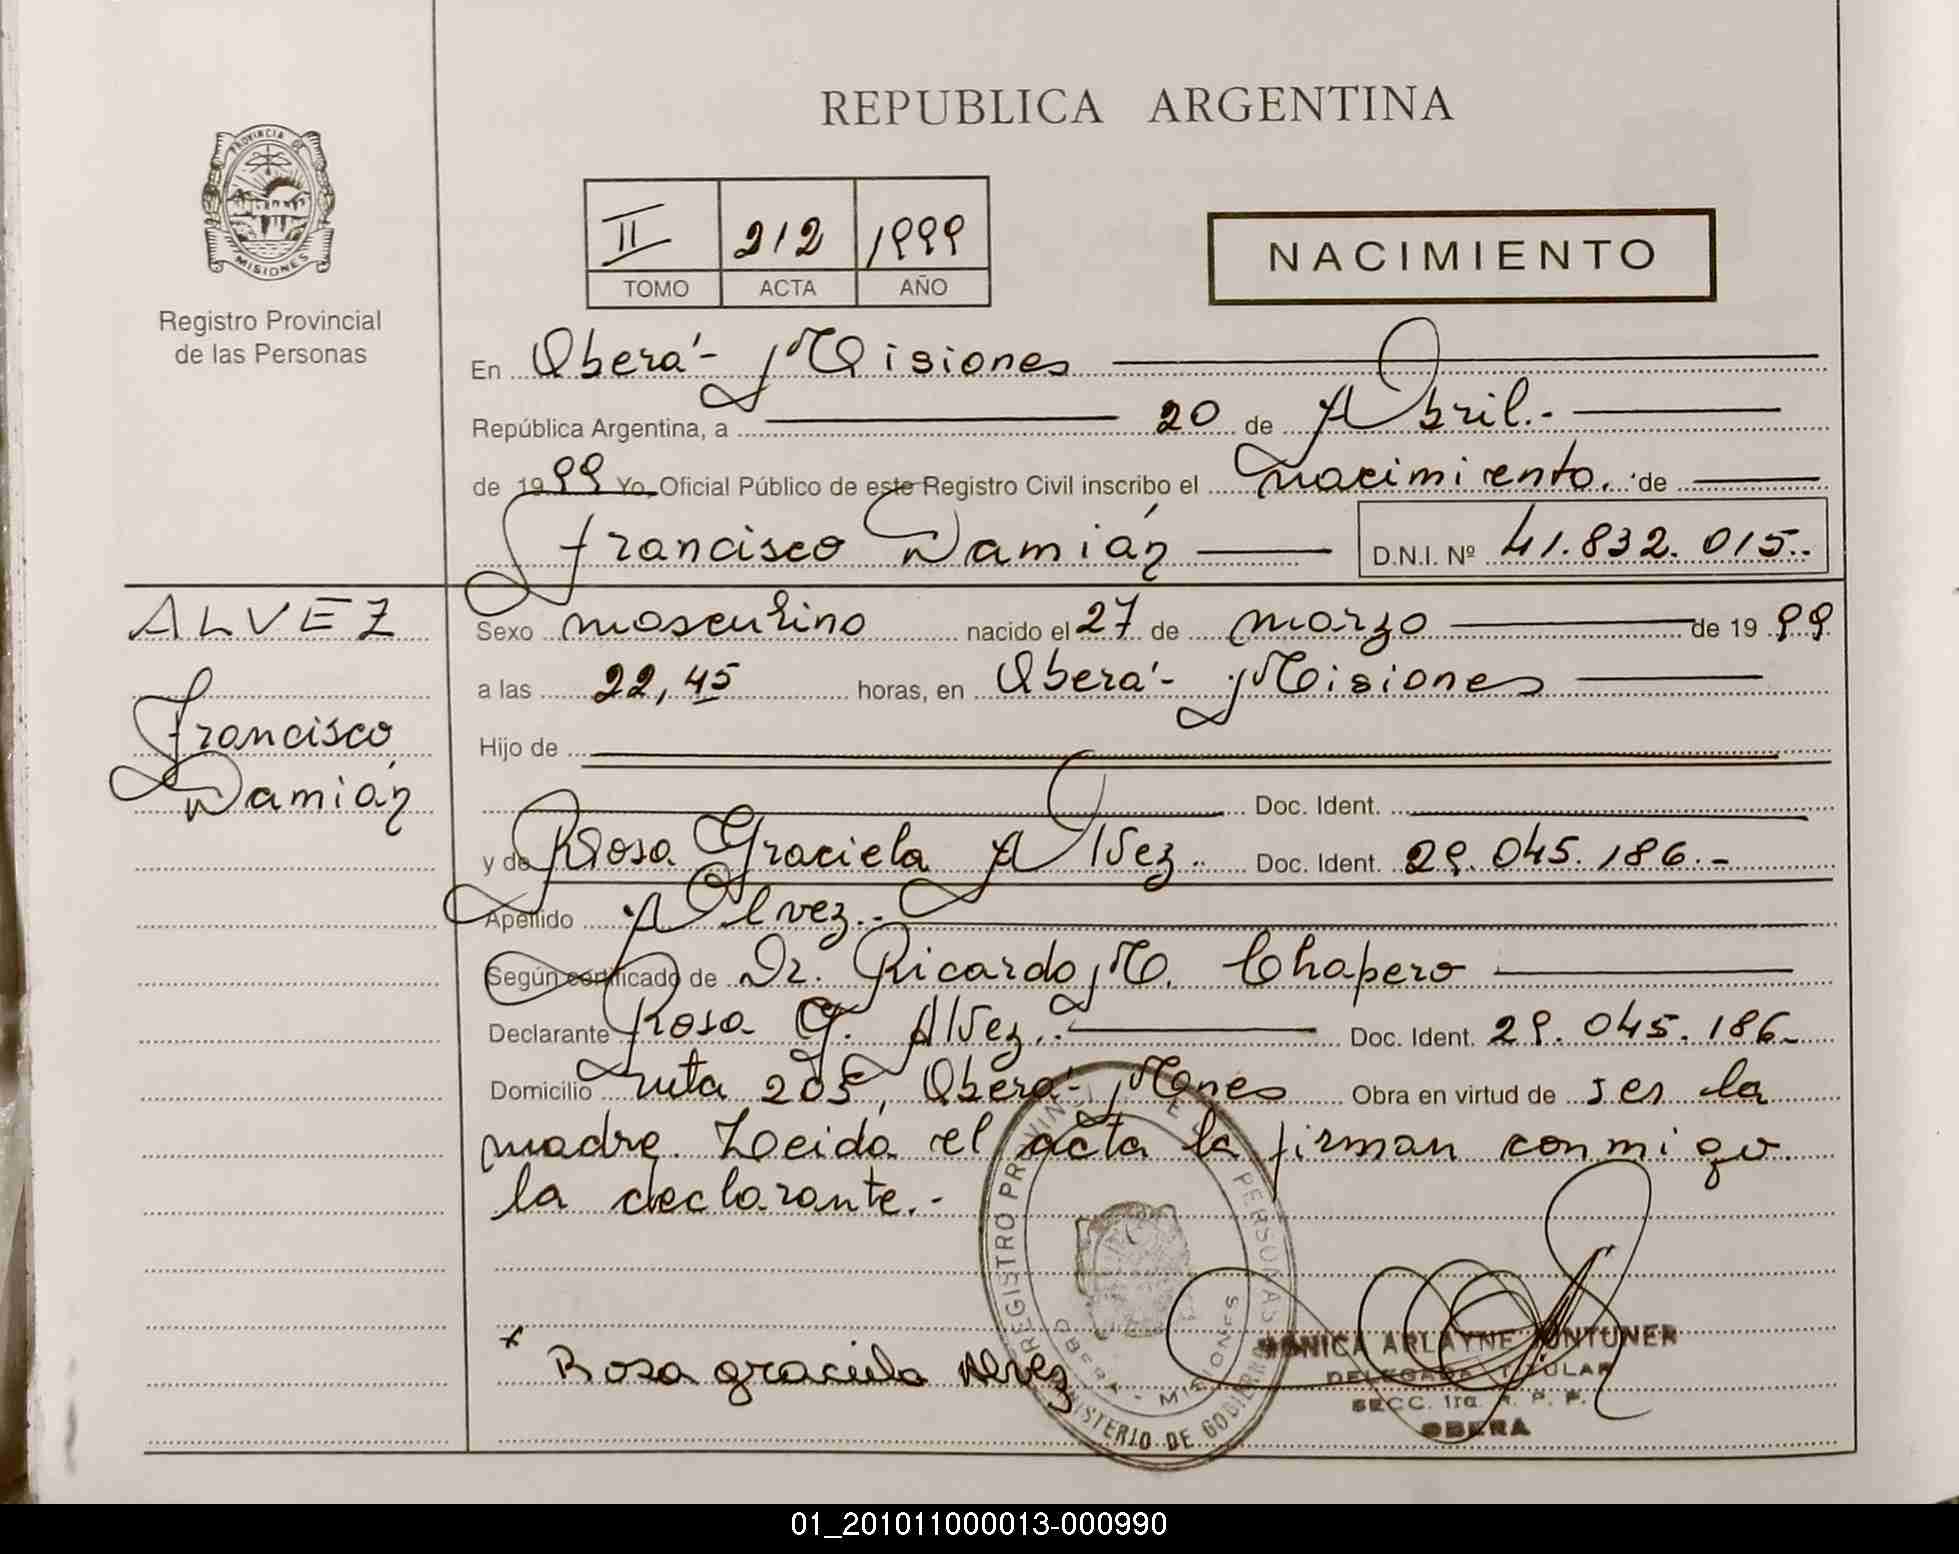 REPUBLICA ARGENTINA
PROVINCIA DE
MISIONES
Registro Provincial
de las Personas
II 212 1999
TOMO ACTA AÑO
NACIMIENTO
En Oberá - Misiones
República Argentina, a 20 de Abril.-
de 1999 Yo, Oficial Público de este Registro Civil inscribo el nacimiento. de
Francisco Damián D.N.I. Nº 41.832.015.-
ALVEZ
Francisco
Damián
Sexo masculino nacido el 27 de marzo de 1999
a las 22,45 horas, en Oberá - Misiones
Hijo de
Doc. Ident.
y de Rosa Graciela Alvez.- Doc. Ident. 29.045.186.-
Apellido Alvez.-
Según certificado de Dr. Ricardo M. Chapero
Declarante Rosa G. Alvez.- Doc. Ident. 29.045.186.-
Domicilio ruta 205, Oberá - Mnes Obra en virtud de ser la
madre. Leida el acta la firman conmigo
la declarante.-
REGISTRO PROVINCIAL DE PERSONAS
OBERA - MISIONES
MINISTERIO DE GOBIERNO
x Rosa graciela Alvez
MONICA ARLAYNE
DELEGADA TITULAR
SECC. 1ra. R. P. P.
OBERA
01_201011000013-000990